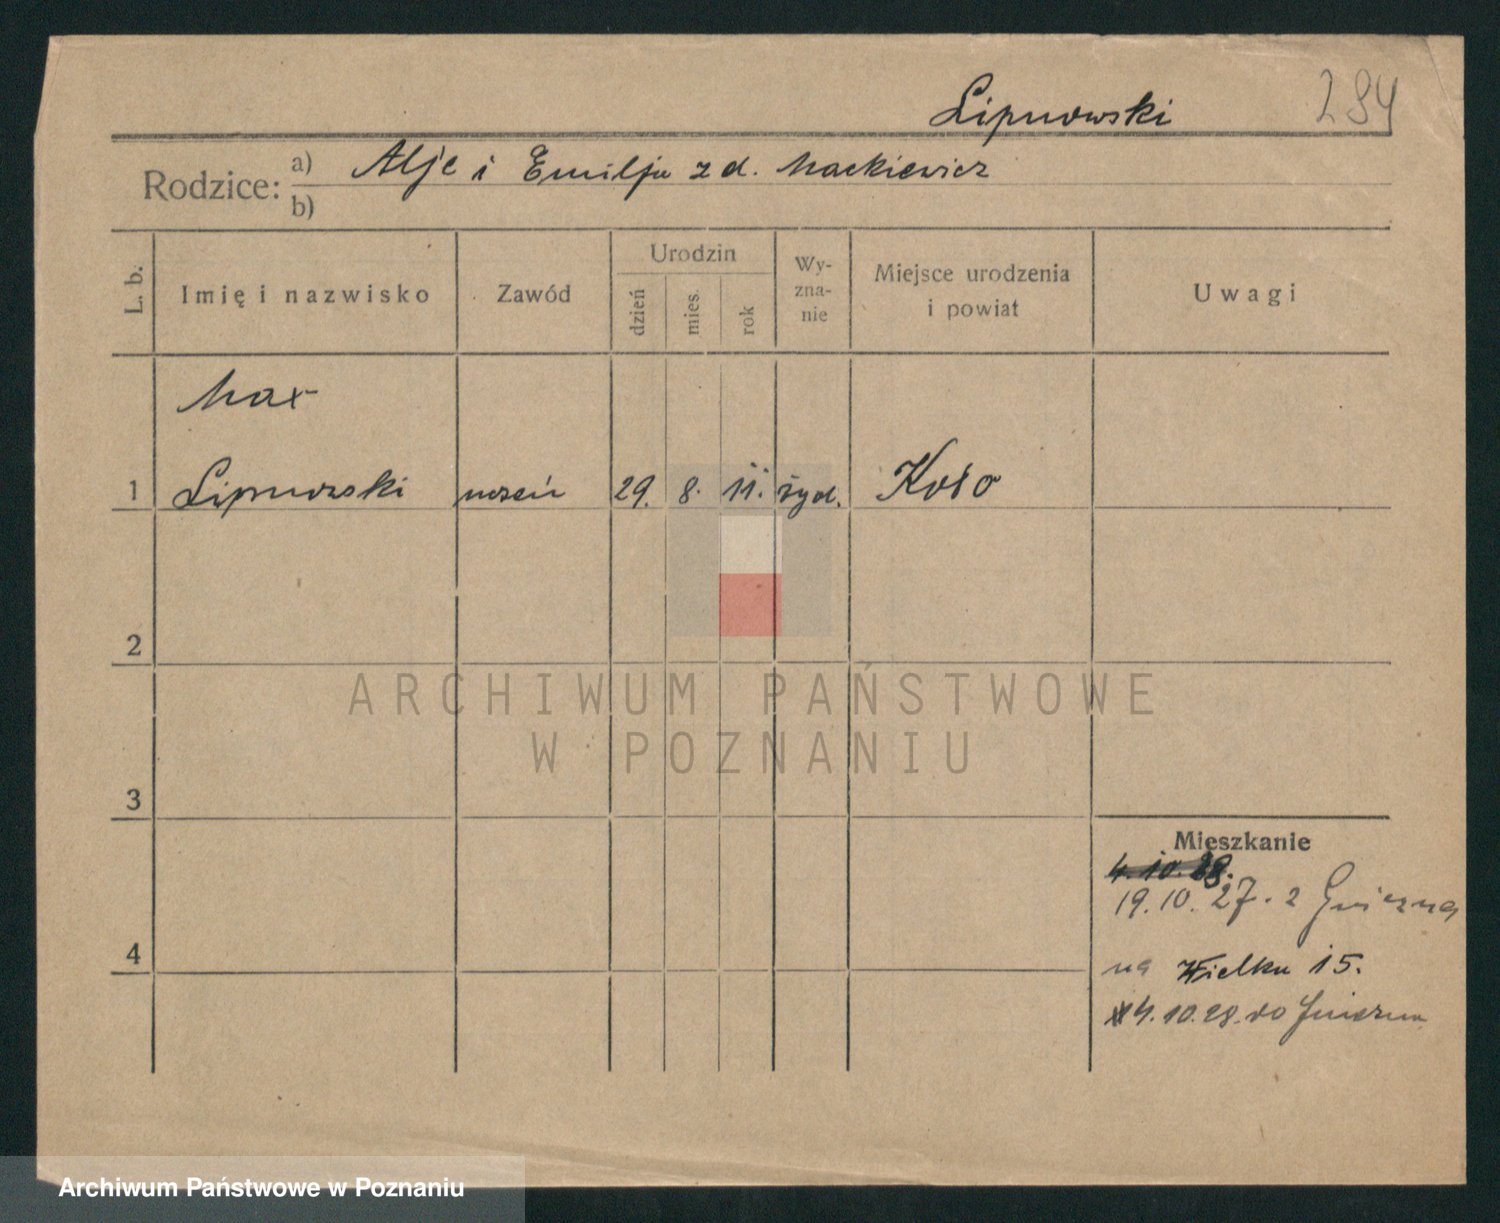 Lipnowski
284
Rodzice: a) Alje i Emilja z d. Mackiewicz
b)
L. b.
Imię i nazwisko
Zawód
Urodzin
dzień
mies.
rok
Wy-
zna-
nie
Miejsce urodzenia
i powiat
Uwagi
Max
1 Lipnowski uczeń 29. 8. 11. żyd. Koło
2
ARCHIWUM PAŃSTWOWE
W POZNANIU
3
Mieszkanie
4.10.28.
19.10.27. z Gniezna
4
na Wielka 15.
4.10.28. do Gniezna
Archiwum Państwowe w Poznaniu